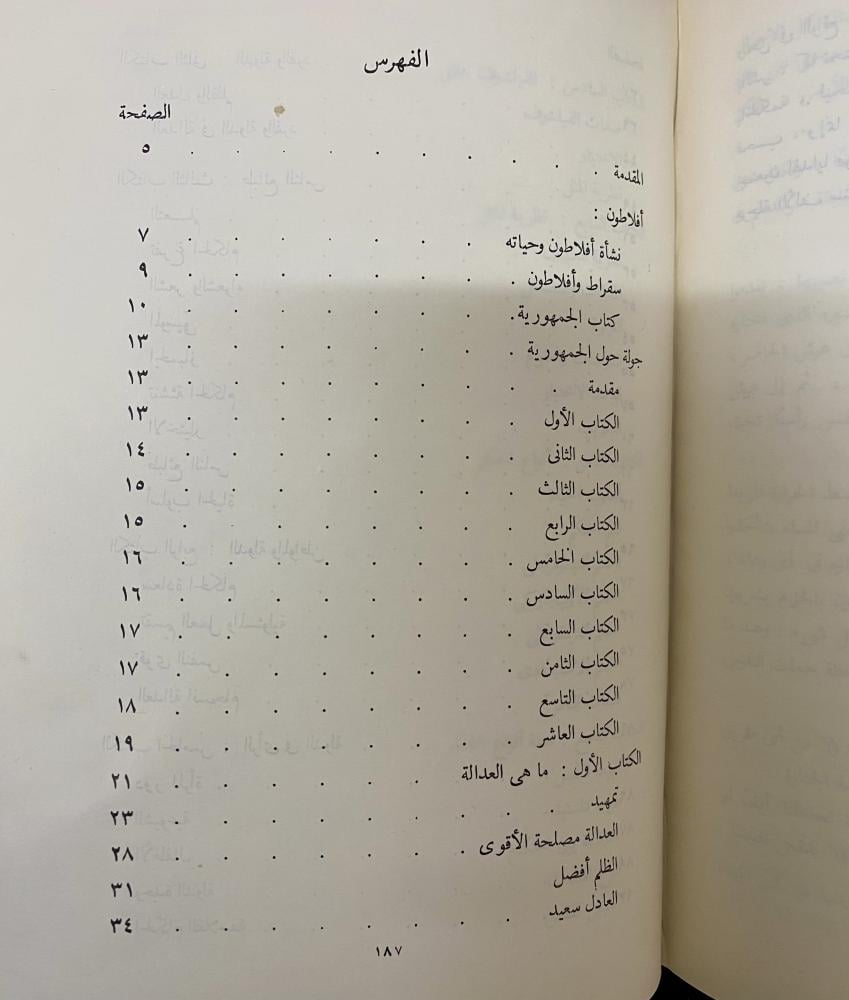 الفهرس
الصفحة
المقدمة . . . . . . . . . ٥
أفلاطون :
نشأة أفلاطون وحياته . . . . . . ٧
سقراط وأفلاطون . . . . . . . ٩
كتاب الجمهورية . . . . . . . ١٠
جولة حول الجمهورية . . . . . . . ١٣
مقدمة . . . . . . . . ١٣
الكتاب الأول . . . . . . . ١٣
الكتاب الثانى . . . . . . . ١٤
الكتاب الثالث . . . . . . . ١٥
الكتاب الرابع . . . . . . . ١٥
الكتاب الخامس . . . . . . . ١٦
الكتاب السادس . . . . . . . ١٦
الكتاب السابع . . . . . . . ١٧
الكتاب الثامن . . . . . . . ١٧
الكتاب التاسع . . . . . . . ١٨
الكتاب العاشر . . . . . . . ١٩
الكتاب الأول : ما هى العدالة . . . . . . ٢١
تمهيد . . . . . . . . ٢٣
العدالة مصلحة الأقوى . . . . . . ٢٨
الظلم أفضل . . . . . . . ٣١
العادل سعيد . . . . . . . ٣٤
١٨٧